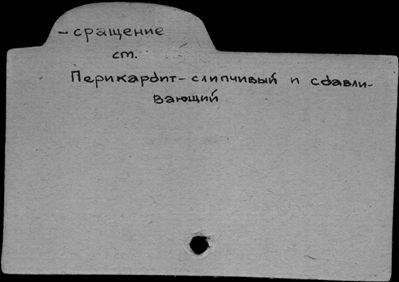 -сращение
ст.
Перикардит-слипчивый и сдавли-
вающий